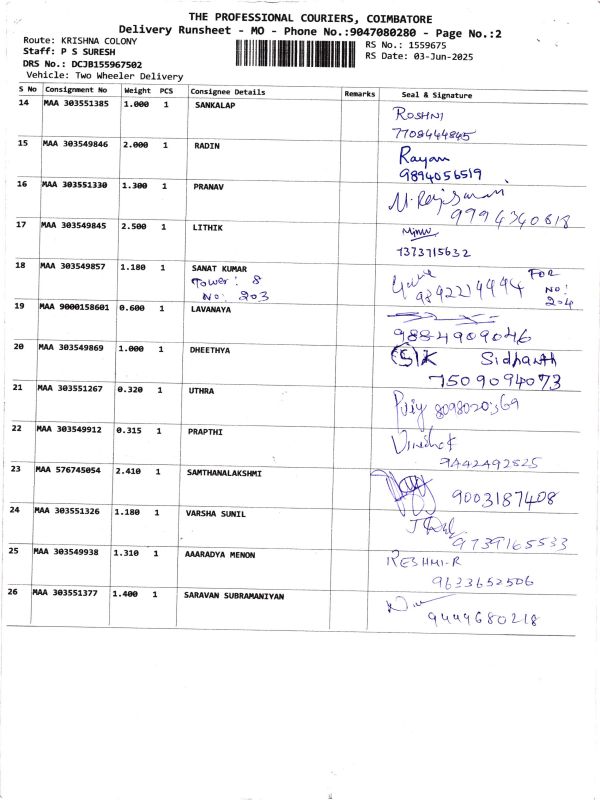 THE PROFESSIONAL COURIERS, COIMBATORE
Delivery Runsheet - MO - Phone No.:9047080280 - Page No.:2
Route: KRISHNA COLONY
RS No.: 1559675
Staff: P S SURESH
RS Date: 03-Jun-2025
DRS No.: DCJB155967502
Vehicle: Two Wheeler Delivery
S No Consignment No Weight PCS Consignee Details Remarks Seal & Signature
14 MAA 303551385 1.000 1 SANKALAP ROSHNI
7708444845
15 MAA 303549846 2.000 1 RADIN Rayan
9894056519
16 MAA 303551330 1.300 1 PRANAV
9994340818
17 MAA 303549845 2.500 1 LITHIK Minu
7373715632
18 MAA 303549857 1.180 1 SANAT KUMAR FOR
Tower: 8 9842214494 NO:
NO: 203 204
19 MAA 9000158601 0.600 1 LAVANAYA
9884909046
20 MAA 303549869 1.000 1 DHEETHYA SK Sidhanth
7509094073
21 MAA 303551267 0.320 1 UTHRA 8098020369
22 MAA 303549912 0.315 1 PRAPTHI
9442492825
23 MAA 576745054 2.410 1 SAMTHANALAKSHMI 9003187408
24 MAA 303551326 1.180 1 VARSHA SUNIL
9739165533
25 MAA 303549938 1.310 1 AAARADYA MENON RESHMI-R
9633652506
26 MAA 303551377 1.400 1 SARAVAN SUBRAMANIYAN
9444680218